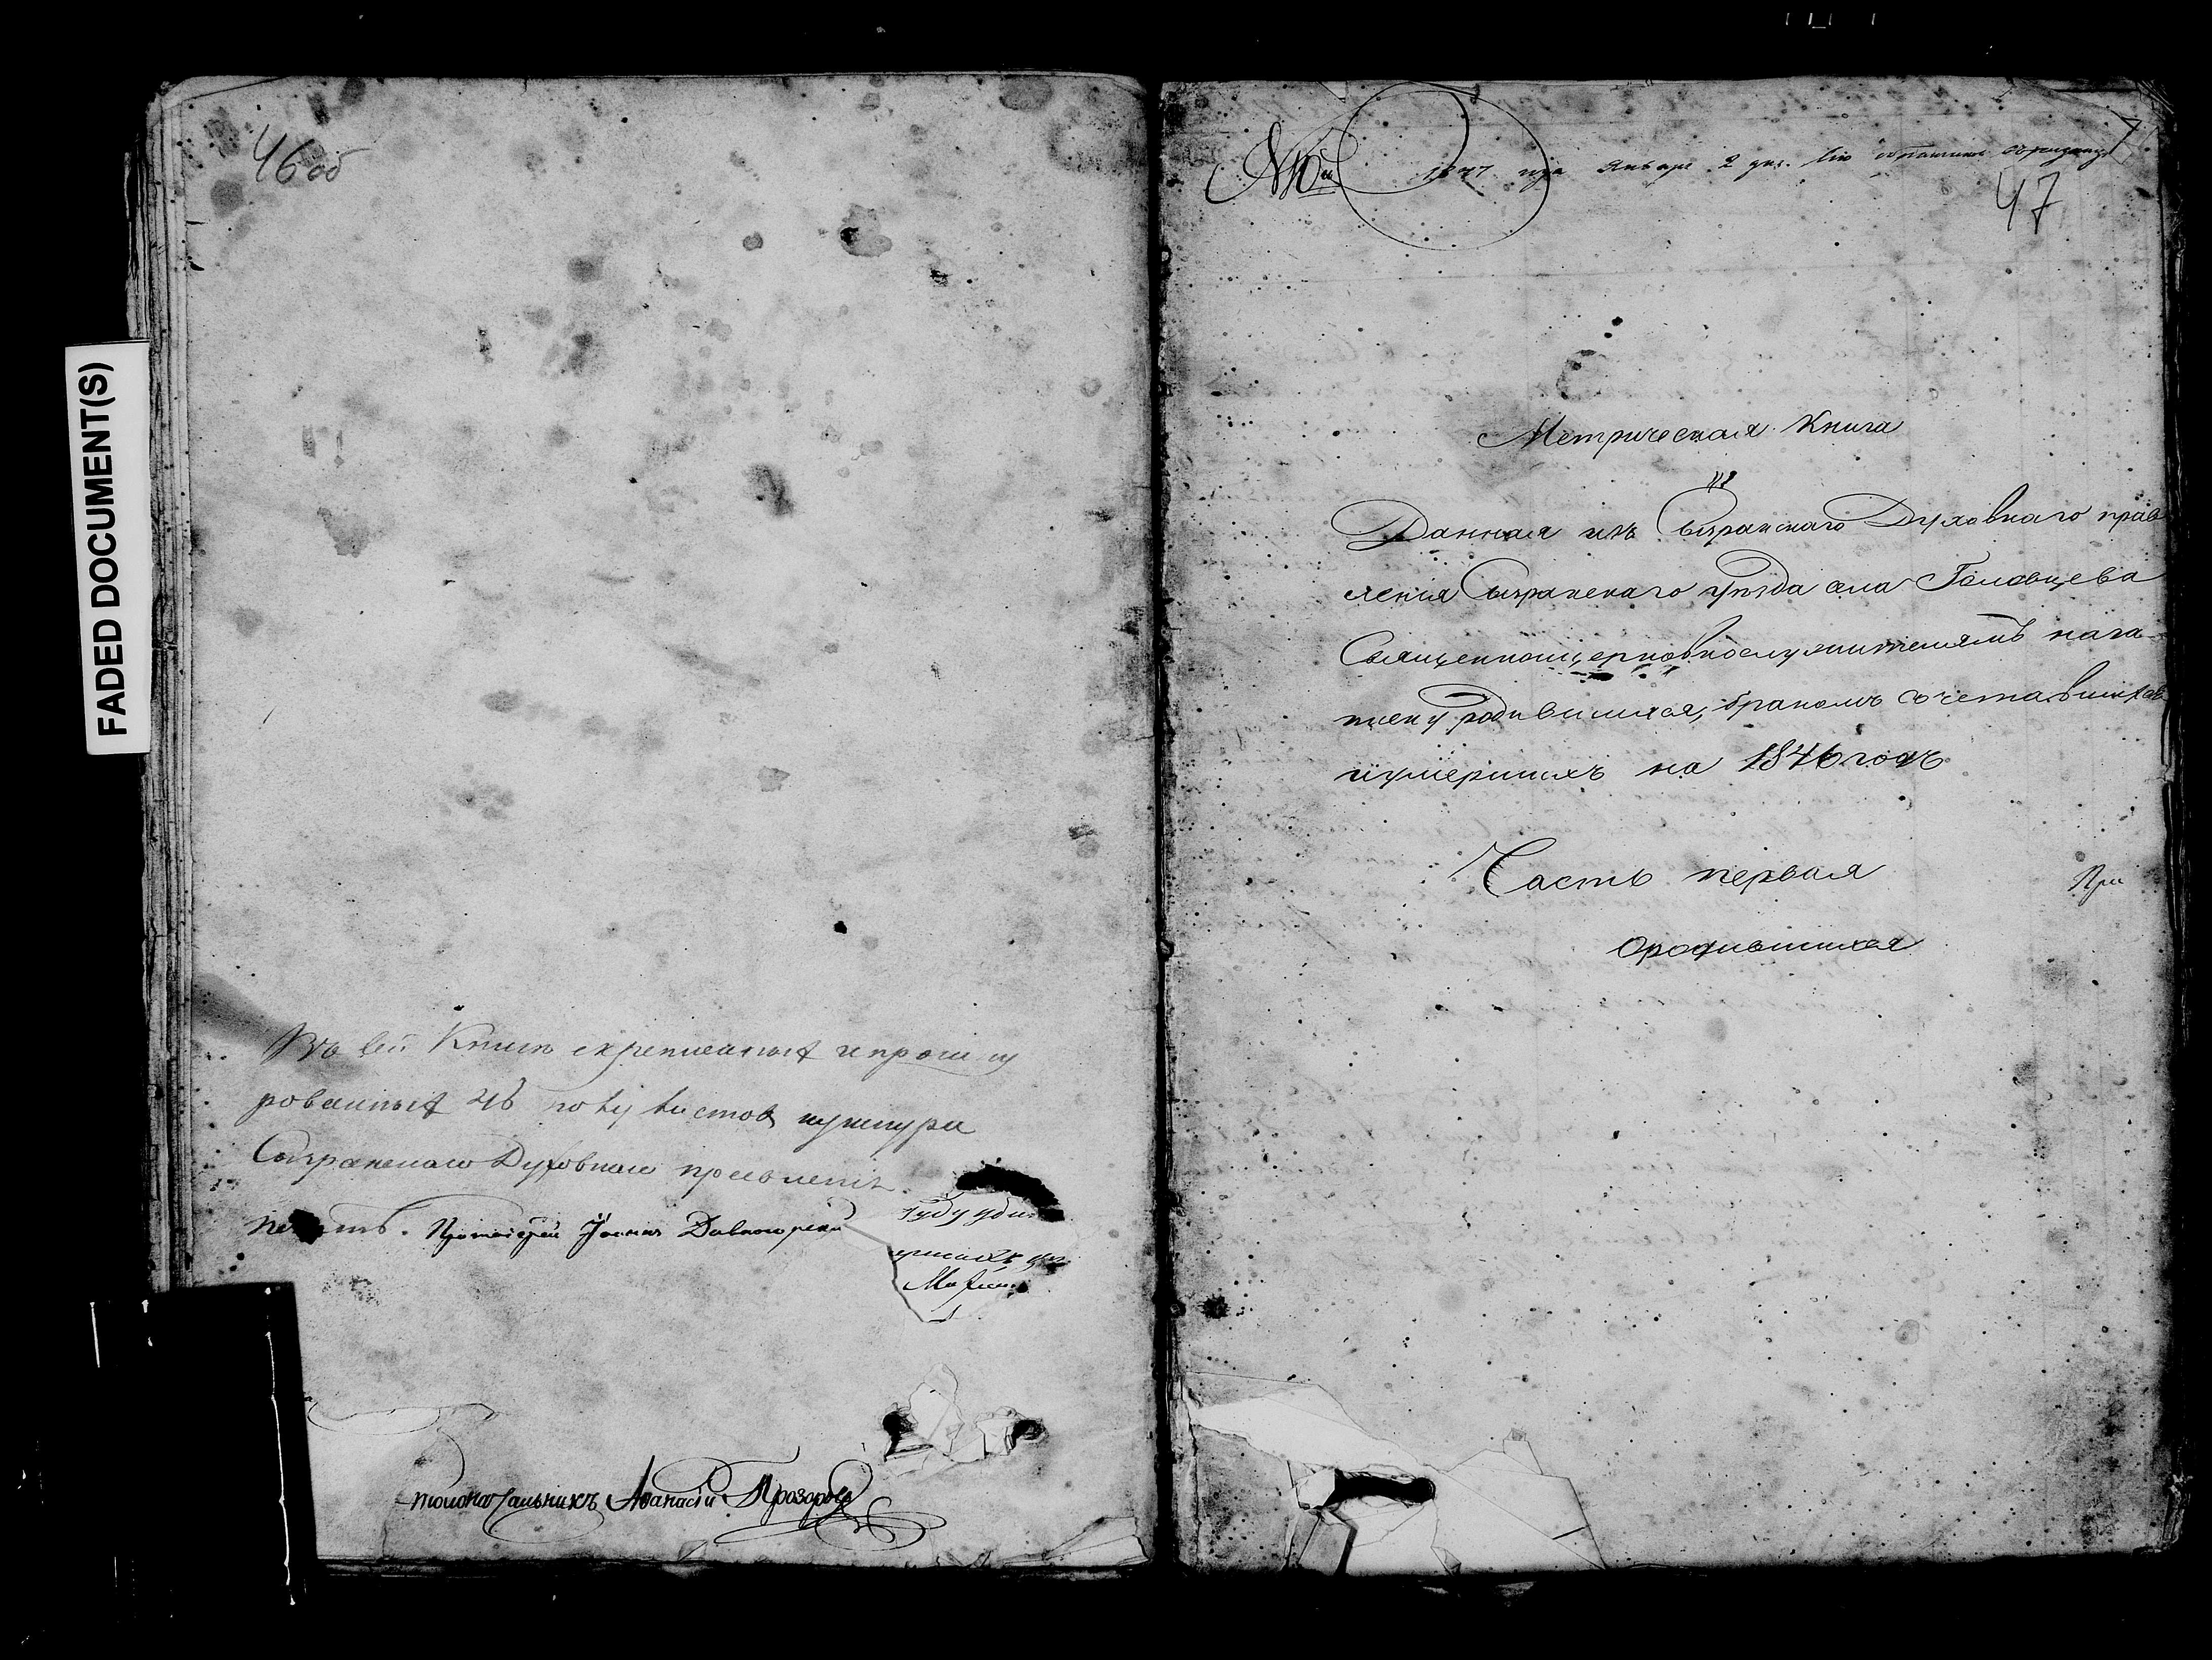 FADED DOCUMENT(S)
46 об
Въ сей Книгѣ скрепленныхъ и прошну
рованныхъ 46 полулистов у шнура
Сызранскаго Духовнаго правленія
печать. Протоіерей Іоаннъ
Столоначальникъ Афанасій Прозоровъ
1847 года Января 2 дня.
47
Метрическая Книга
Данная изъ Сызранскаго Духовнаго прав
ленія Сызранскаго уѣзда села Головцева
Священноцерковнослужителямъ на за-
писку родившихся, бракомъ сочетавшихся
и умершихъ на 1846 годъ
Часть первая
При
о родившихся